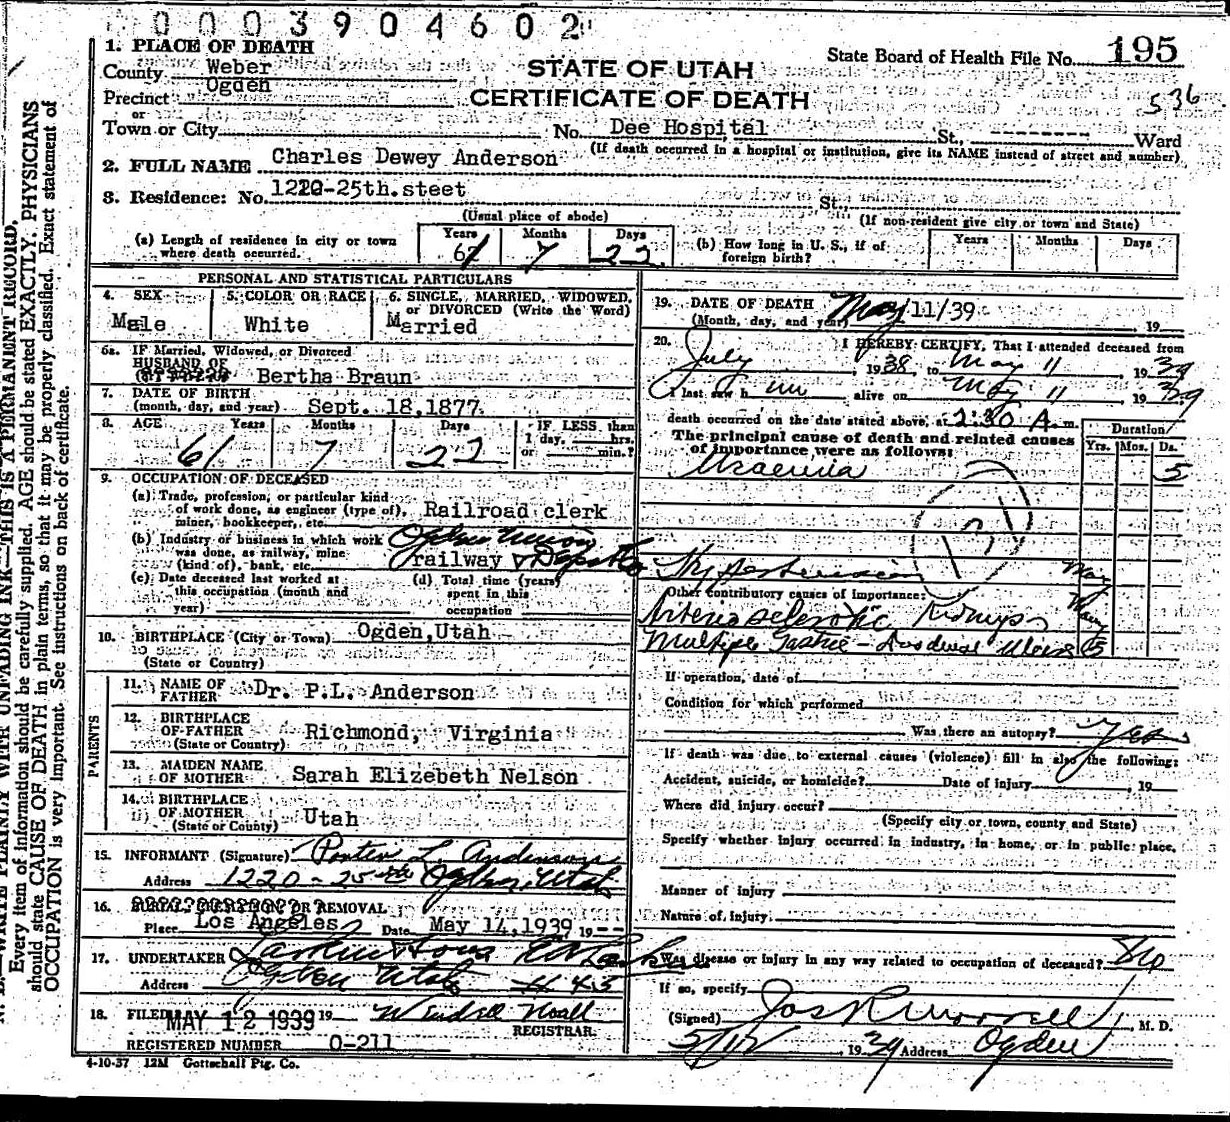 0003904602
State Board of Health File No. 195
536
STATE OF UTAH
CERTIFICATE OF DEATH
1. PLACE OF DEATH
County Weber
Precinct Ogden
or
Town or City No. Dee Hospital St., Ward
(If death occurred in a hospital or institution, give its NAME instead of street and number)
2. FULL NAME Charles Dewey Anderson
3. Residence: No. 1220-25th.steet St.,
(Usual place of abode)
(If non-resident give city or town and State)
(a) Length of residence in city or town where death occurred. Years 61 Months 7 Days 22
(b) How long in U. S., if of foreign birth? Years Months Days
PERSONAL AND STATISTICAL PARTICULARS
4. SEX Male
5. COLOR OR RACE White
6. SINGLE, MARRIED, WIDOWED, or DIVORCED (Write the Word) Married
6a. IF Married, Widowed, or Divorced
HUSBAND OF Bertha Braun
7. DATE OF BIRTH
(month, day, and year) Sept. 18,1877
8. AGE Years 61 Months 7 Days 22
IF LESS than 1 day, hrs. or min.?
9. OCCUPATION OF DECEASED
(a) Trade, profession, or particular kind of work done, as engineer (type of), miner, bookkeeper, etc. Railroad clerk
(b) Industry or business in which work was done, as railway, mine (kind of), bank, etc. Ogden Union railway & Depot Co
(c) Date deceased last worked at this occupation (month and year)
(d) Total time (years) spent in this occupation
10. BIRTHPLACE (City or Town) Ogden,Utah
(State or Country)
PARENTS
11. NAME OF FATHER Dr. P.L. Anderson
12. BIRTHPLACE OF FATHER (State or Country) Richmond, Virginia
13. MAIDEN NAME OF MOTHER Sarah Elizebeth Nelson
14. BIRTHPLACE OF MOTHER (State or Country) Utah
15. INFORMANT (Signature) Porter L. Anderson
Address 1220 - 25th Ogden, Utah
16. BURIAL, CREMATION OR REMOVAL
Place Los Angeles Date May 14,1939 19--
17. UNDERTAKER Larkin & Sons
Address Ogden Utah # 43
18. FILED MAY 12 1939 19 Wendell Noall
REGISTRAR.
REGISTERED NUMBER 0-211
4-10-37 12M Gottschall Ptg. Co.
19. DATE OF DEATH May 11/39
(Month, day, and year) , 19
20. I HEREBY CERTIFY, That I attended deceased from
July , 1938, to May 11 , 1939
I last saw h im alive on May 11 , 1939
death occurred on the date stated above, at 2:30 A. m.
The principal cause of death and related causes of importance were as follows:
Duration
Yrs. Mos. Ds.
Uraemia 5
Hypertension Many
Other contributory causes of importance:
Arteriosclerotic Kidneys Many
Multiple Gastric - Duodenal Ulcers
If operation, date of
Condition for which performed
Was there an autopsy? Yes
If death was due to external causes (violence) fill in also the following:
Accident, suicide, or homicide? Date of injury , 19
Where did injury occur?
(Specify city or town, county and State)
Specify whether injury occurred in industry, in home, or in public place.
Manner of injury
Nature of injury
Was disease or injury in any way related to occupation of deceased? No
If so, specify
(Signed) Jos R Morrell , M. D.
5/12 , 1939 Address Ogden
WRITE PLAINLY WITH UNFADING INK—THIS IS A PERMANENT RECORD.
Every item of information should be carefully supplied. AGE should be stated EXACTLY. PHYSICIANS
should state CAUSE OF DEATH in plain terms, so that it may be properly classified. Exact statement of
OCCUPATION is very important. See instructions on back of certificate.